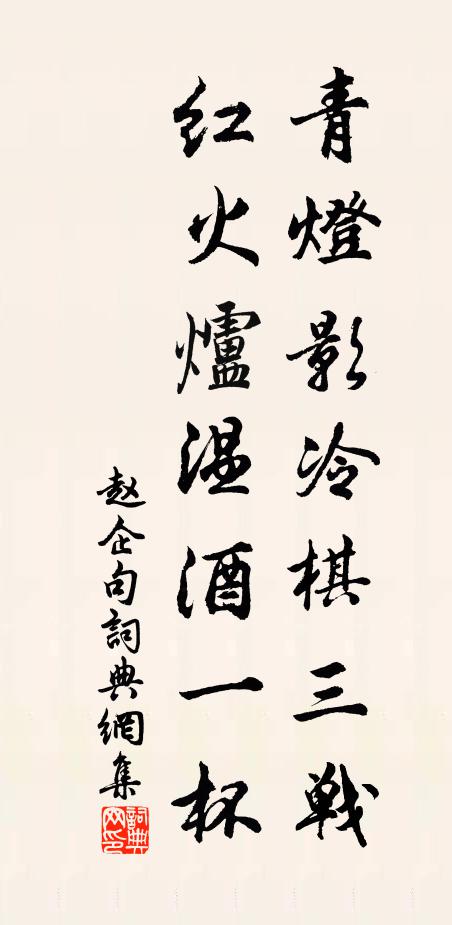 青燈影冷棋三戰
紅火爐温酒一杯
赵企句詞典網集
詞典网印